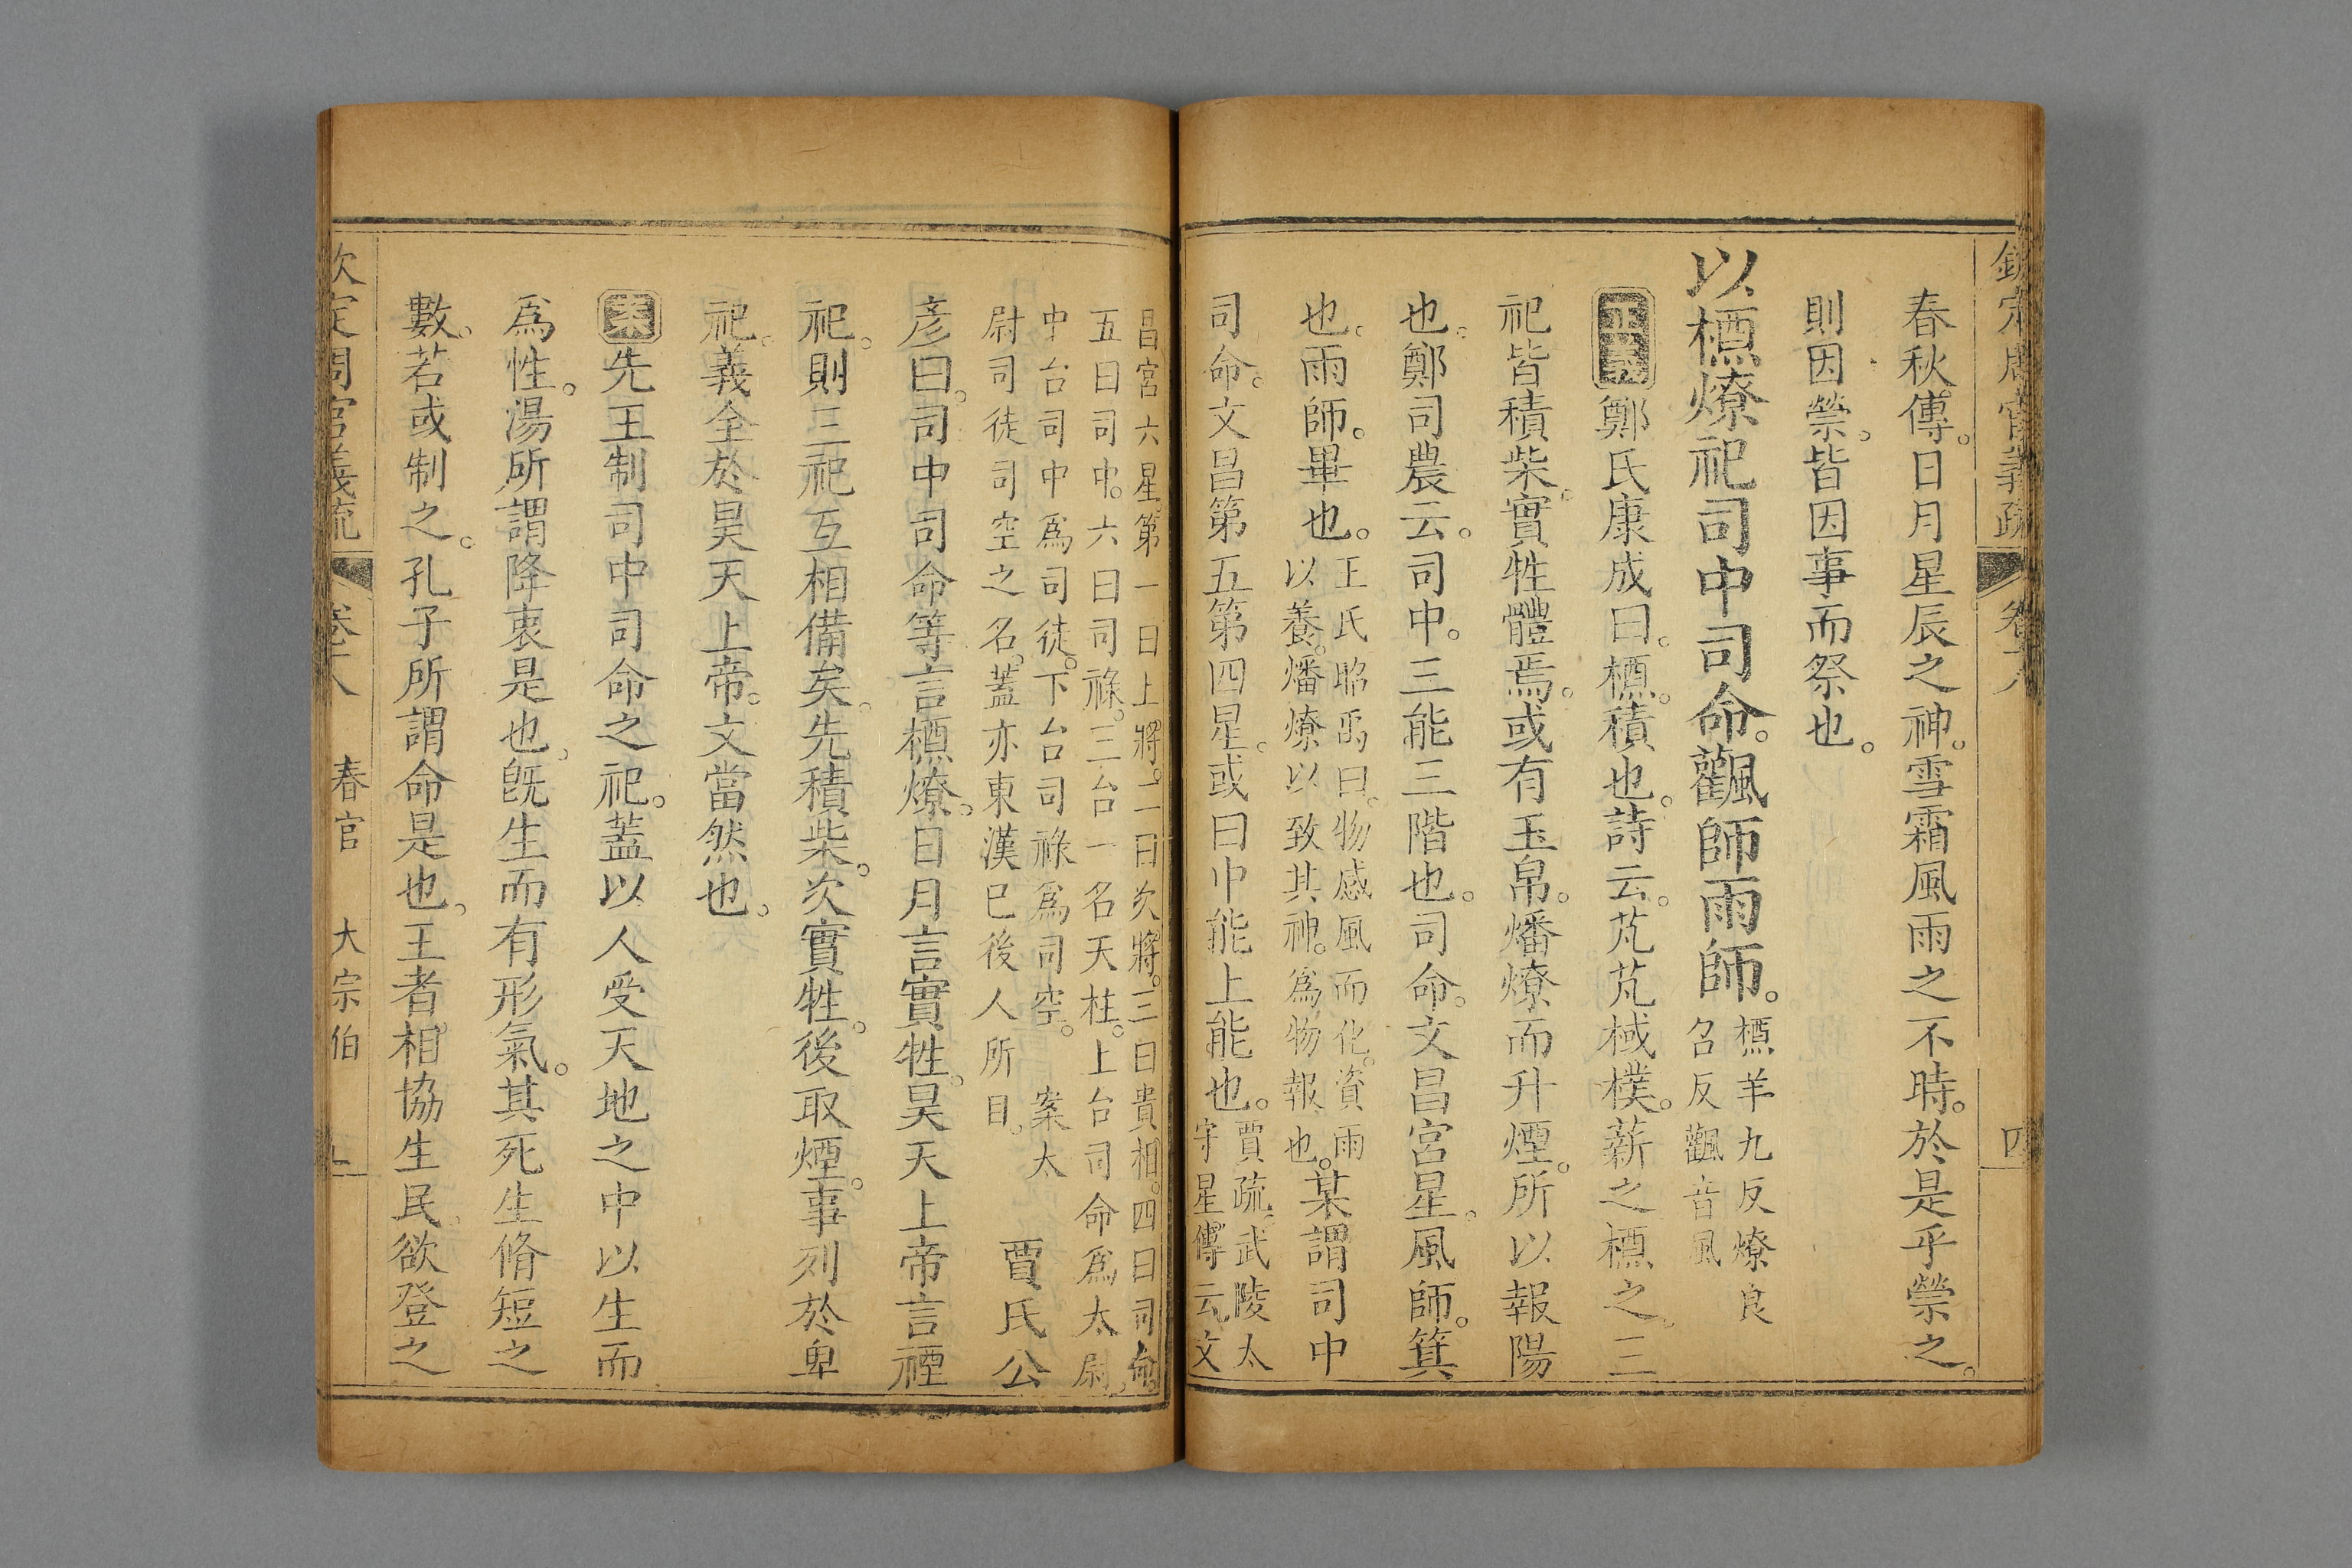 欽定周官義疏
四
春秋傳。日月星辰之神。雪霜風雨之不時。於是乎禜之。
則因禜。皆因事而祭也。
以槱燎祀司中司命。飌師雨師。
槱羊九反燎良
召反飌音風
正義鄭氏康成曰。槱。積也。詩云。芃芃棫樸。薪之槱之。三
祀皆積柴。實牲體焉。或有玉帛。燔燎而升煙。所以報陽
也。鄭司農云。司中。三能三階也。司命。文昌宮星。風師。箕
也。雨師。畢也。
王氏昭禹曰。物感風而化。資雨
以養。燔燎以致其神。為物報也。
某謂司中
司命。文昌第五第四星。或曰中能上能也。
賈疏。武陵太
守星傳云。文
昌宮六星。第一曰上將。二曰次將。三曰貴相。四曰司命。
五曰司中。六曰司祿。三台一名天柱。上台司命為太尉。
中台司中為司徒。下台司祿為司空。 案太
尉司徒司空之名。蓋亦東漢已後人所目。
賈氏公
彥曰。司中司命等言槱燎。日月言實牲。昊天上帝言禋
祀。則三祀互相備矣。先積柴。次實牲。後取煙。事列於卑
祀。義全於昊天上帝。文當然也。
案先王制司中司命之祀。蓋以人受天地之中以生而
為性。湯所謂降衷是也。旣生而有形氣。其死生脩短之
數。若或制之。孔子所謂命是也。王者相協生民。欲登之
欽定周官義疏 卷十八 春官 大宗伯